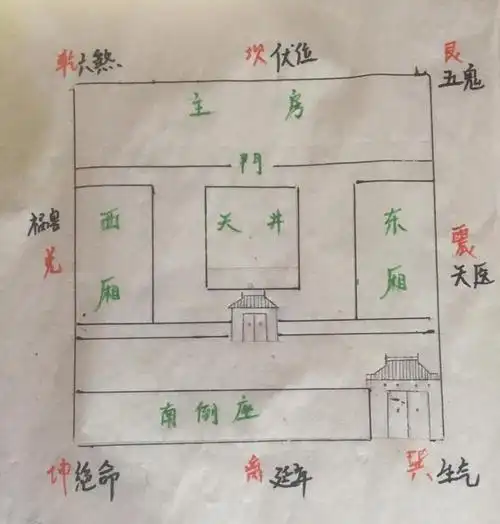 乾六煞
坎伏位
艮
五鬼
主房
門
西厢
天井
东厢
祸害
兑
震
天医
南倒座
坤绝命
离延年
巽生气